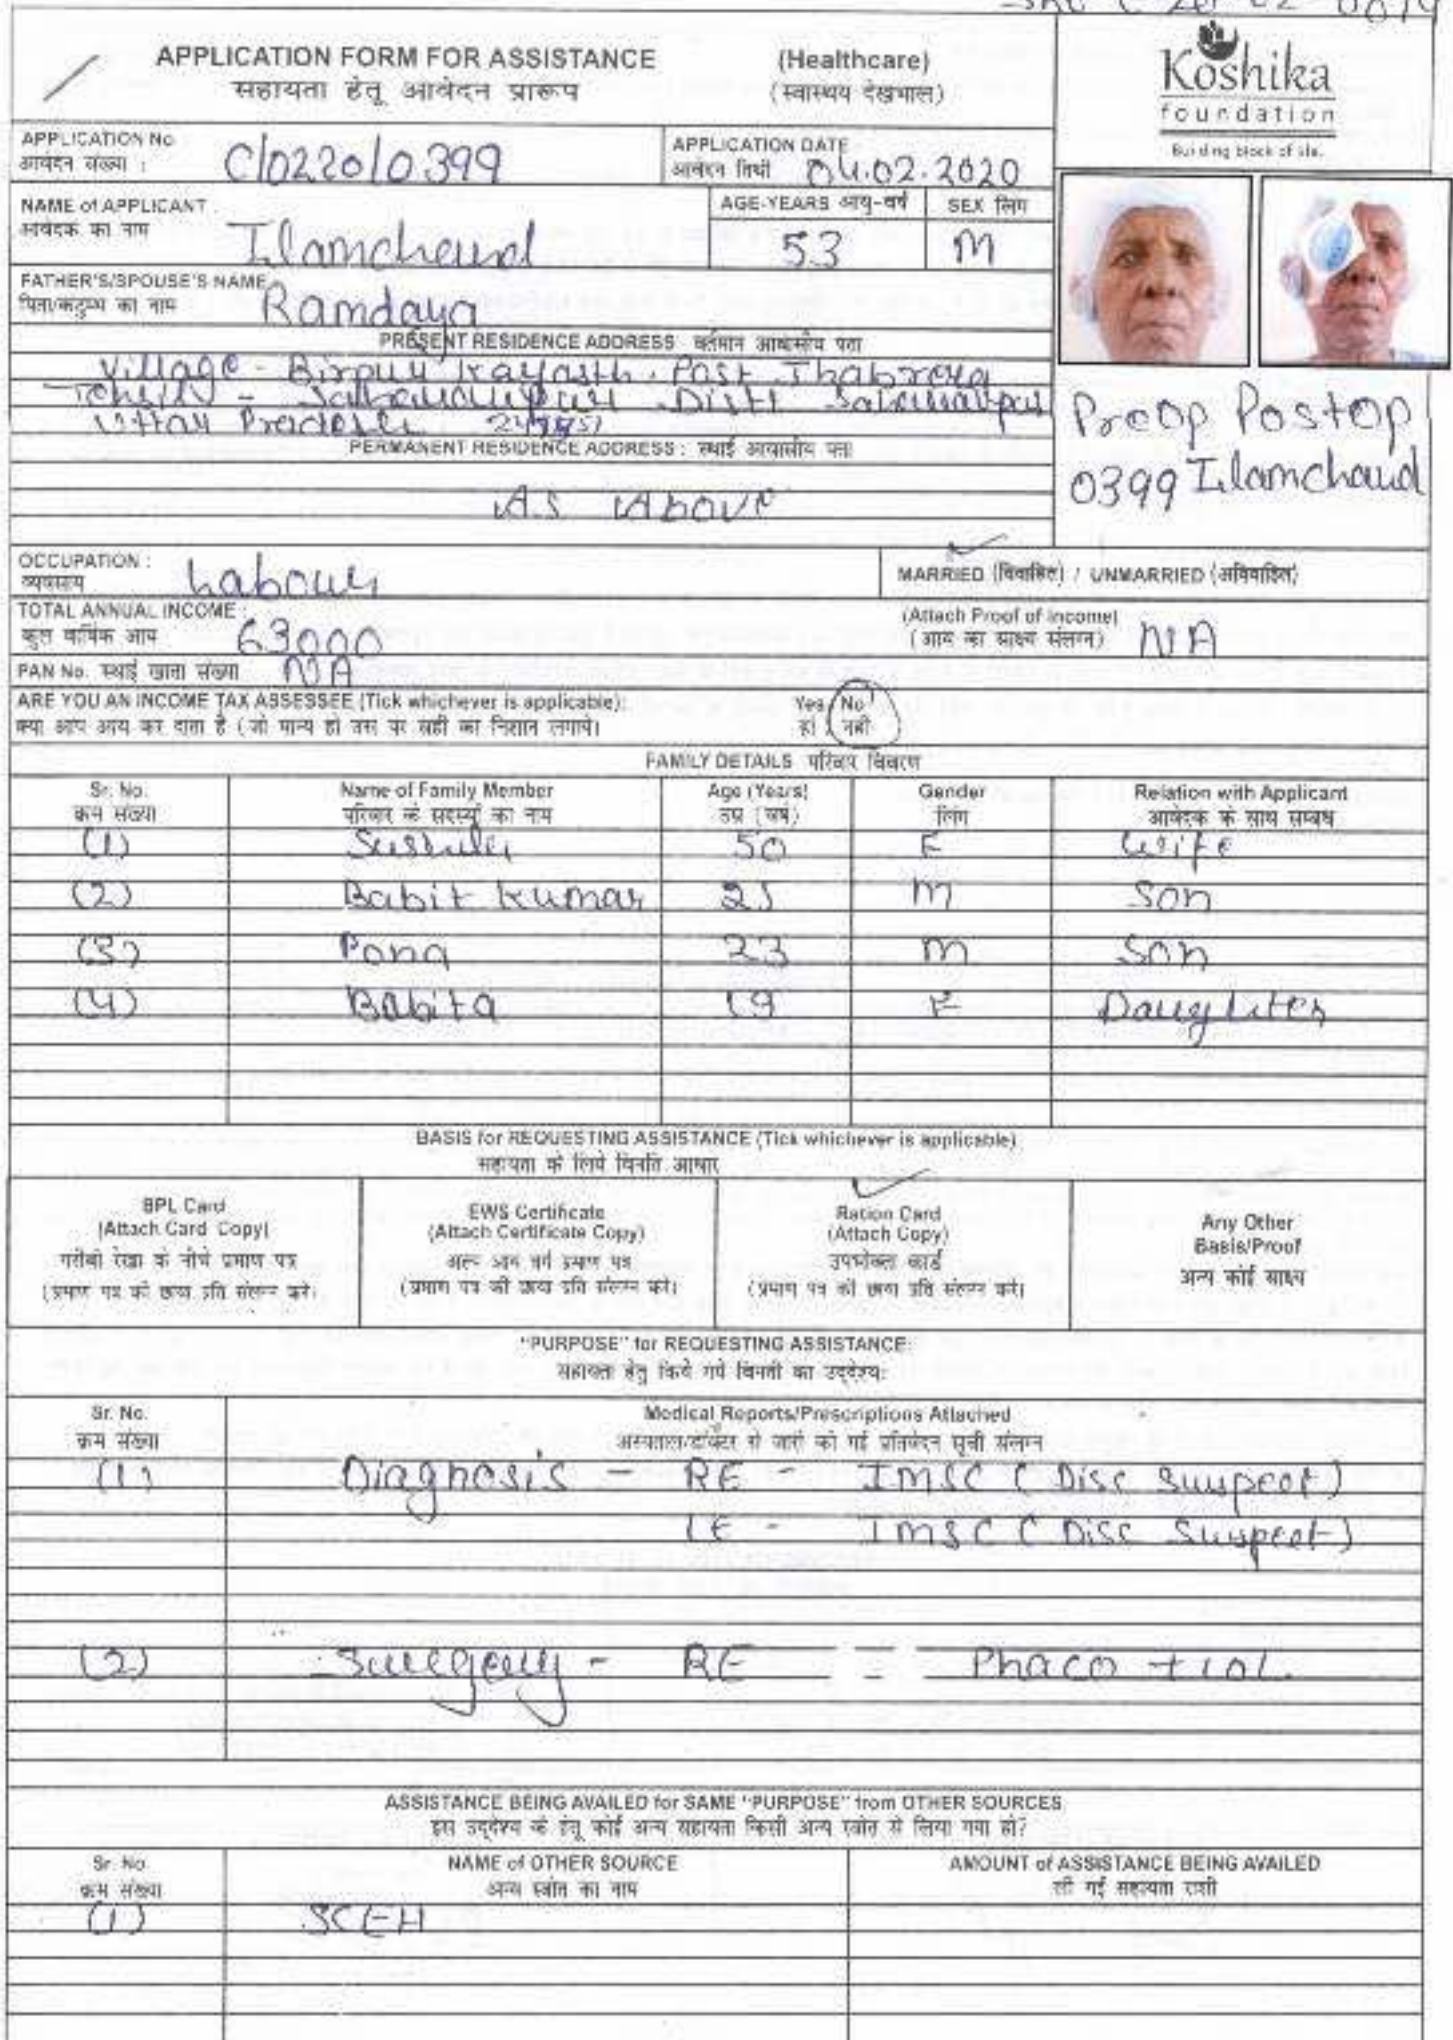 APPLICATION FORM FOR ASSISTANCE (Healthcare)
सहायता हेतू आवेदन प्रारूप (स्वास्थय देखभाल)
Koshika
foundation
Building block of life.
APPLICATION No.
आवेदन संख्या :
C/0220/0399
APPLICATION DATE
आवेदन तिथी
04.02.2020
NAME of APPLICANT
आवेदक का नाम
Ilamchand
AGE-YEARS आयु-वर्ष
53
SEX लिंग
M
FATHER'S/SPOUSE'S NAME
पिता/कटुम्भ का नाम
Ramdaya
PRESENT RESIDENCE ADDRESS वर्तमान आवासीय पता
Village - Birpur Kayasth. Post
Disti
Uttar Pradesh
PERMANENT RESIDENCE ADDRESS : स्थाई आवासीय पता
As Above
Preop Postop
0399 Ilamchand
OCCUPATION :
व्यवसाय
Labour
MARRIED (विवाहित) / UNMARRIED (अविवाहित)
TOTAL ANNUAL INCOME :
कुल वार्षिक आय
63000
(Attach Proof of Income)
(आय का साक्ष्य संलग्न)
NA
PAN No. स्थाई खाता संख्या
NA
ARE YOU AN INCOME TAX ASSESSEE (Tick whichever is applicable): Yes / No
क्या आप आय कर दाता है (जो मान्य हो उस पर सही का निशान लगाये। हां / नहीं
FAMILY DETAILS परिवार विवरण
Sr. No. Name of Family Member Age (Years) Gender Relation with Applicant
क्रम संख्या परिवार के सदस्यों का नाम उम्र (वर्ष) लिंग आवेदक के साथ सम्बंध
(1) 50 F Wife
(2) Babit Kumar 21 M Son
(3) Pona 23 M Son
(4) Babita 19 F Daughter
BASIS for REQUESTING ASSISTANCE (Tick whichever is applicable)
सहायता के लिये विनति आधार
BPL Card
(Attach Card Copy)
गरीबी रेखा के नीचे प्रमाण पत्र
(प्रमाण पत्र की छाया प्रति संलग्न करे।
EWS Certificate
(Attach Certificate Copy)
अल्प आय वर्ग प्रमाण पत्र
(प्रमाण पत्र की छाया प्रति संलग्न करे।
Ration Card
(Attach Copy)
उपभोक्ता कार्ड
(प्रमाण पत्र की छाया प्रति संलग्न करे।
Any Other
Basis/Proof
अन्य कोई साक्ष्य
"PURPOSE" for REQUESTING ASSISTANCE:
सहायता हेतु किये गये विनती का उद्देश्य:
Sr. No. Medical Reports/Prescriptions Attached
क्रम संख्या अस्पताल/डॉक्टर से जारी की गई प्रतिवेदन सूची संलग्न
(1) Diagnosis - RE - IMSC (Disc Suspect)
LE - IMSC (Disc Suspect)
(2) Surgery - RE - Phaco + IOL.
ASSISTANCE BEING AVAILED for SAME "PURPOSE" from OTHER SOURCES
इस उद्देश्य के हेतू कोई अन्य सहायता किसी अन्य स्त्रोत से लिया गया हो?
Sr. No. NAME of OTHER SOURCE AMOUNT of ASSISTANCE BEING AVAILED
क्रम संख्या अन्य स्त्रोत का नाम ली गई सहायता राशी
(1) SCEH